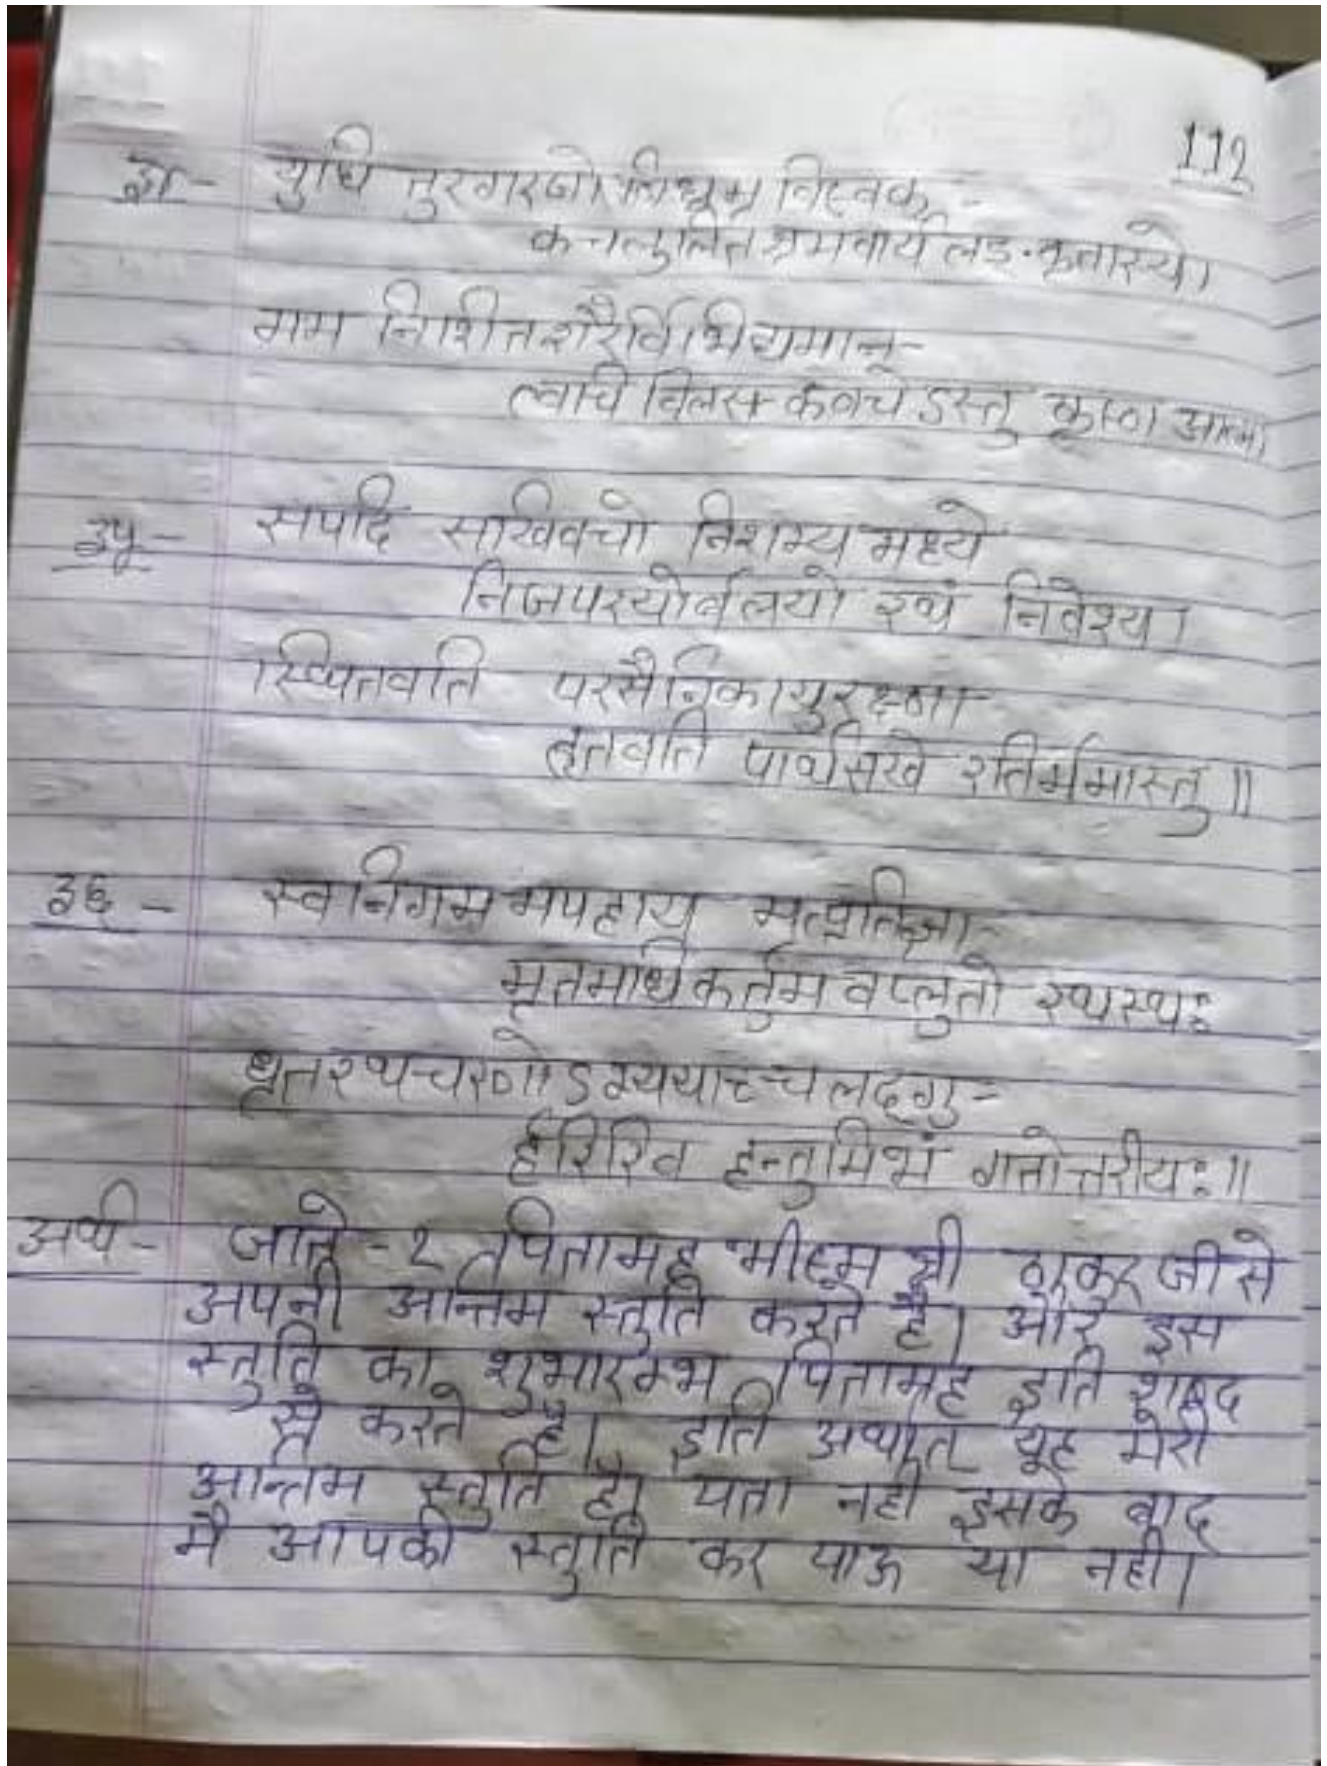 112
युधि तुरगरजो विधूम्र विष्वक् -
कचलुलित श्रमवार्य लङ्.कृतास्ये।
मम निशीत शरैर्विभिद्यमान -
त्वचि विलस कवचेऽस्तु कृष्ण आत्मा
३५ - सपदि सखिवचो निशम्य मध्ये
निजपरयोर्बलयो रथं निवेश्य।
स्थितवति परसैनिकायुरक्ष्णा -
हृतवति पार्थसखे रतिर्ममास्तु॥
३६ - स्वनिगम मपहाय मत्प्रतिज्ञा -
मृतमधि कर्तुम वप्लुतो रथस्थः
धृतरथचरणोऽभ्ययाच्चलद्गु -
र्हरिरिव हन्तुमिभं गतोत्तरीयः॥
अर्थ - जाते - २ पितामह भीष्म श्री ठाकुर जी से
अपनी अन्तिम स्तुति करते है। और इस
स्तुति का शुभारम्भ पितामह इति शब्द
से करते है। इति अर्थात यह मेरी
अन्तिम स्तुति है। पता नही इसके बाद
मै आपकी स्तुति कर पाऊ या नही।